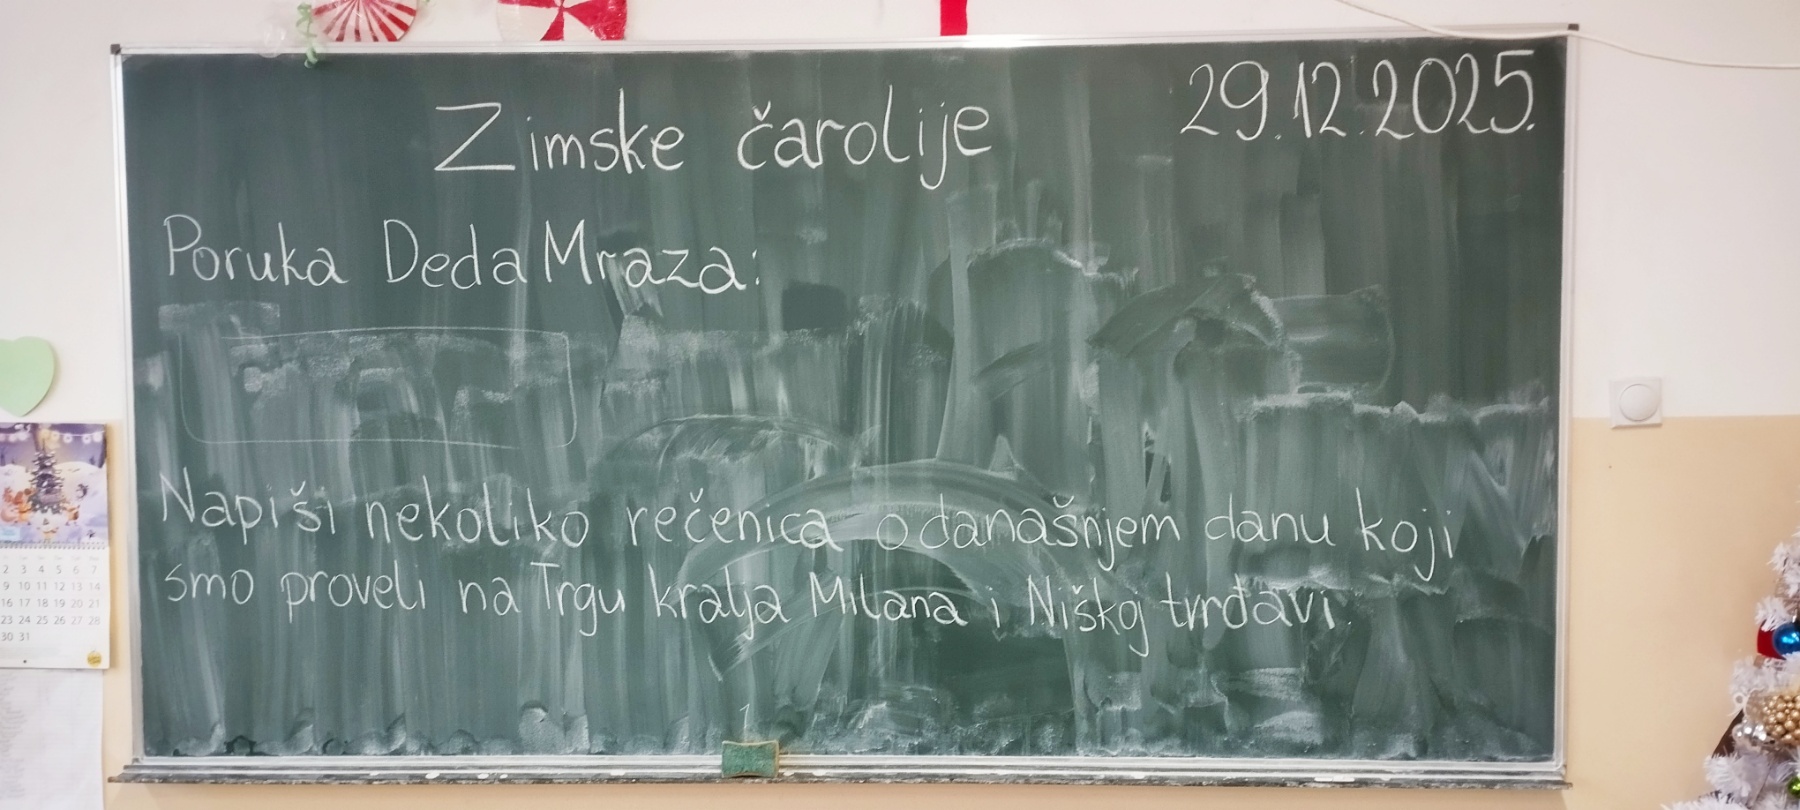 Zimske čarolije
29.12.2025.
Poruka Deda Mraza:
Napiši nekoliko rečenica o današnjem danu koji
smo proveli na Trgu kralja Milana i Niškoj tvrđavi.
2 3 4 5 6 7
9 10 11 12 13 14
16 17 18 19 20 21
23 24 25 26 27 28
30 31